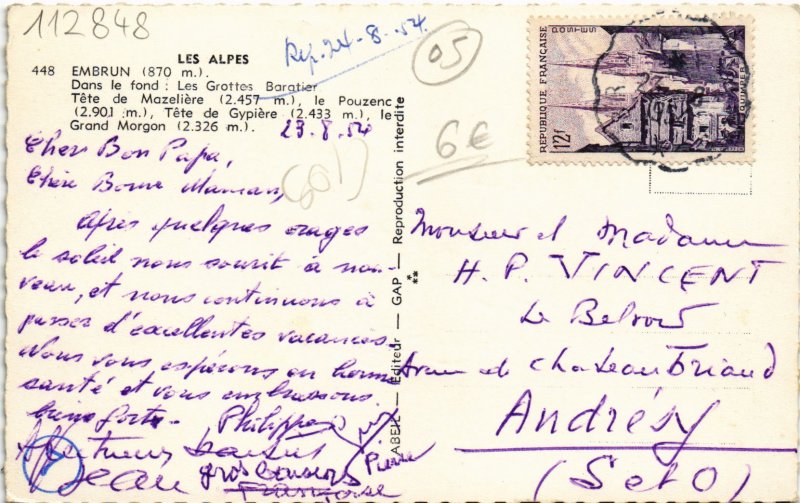 112848
LES ALPES
448 EMBRUN (870 m.).
Dans le fond : Les Grottes Baratier
Tête de Mazelière (2.457 m.), le Pouzenc
(2.901 m), Tête de Gypière (2.433 m.), le
Grand Morgon (2.326 m.).
Rép. 24-8-54
23.8.54
Cher Bon Papa,
Chère Bonne Maman,
Après quelques orages
le soleil nous sourit à nou-
veau, et nous continuons à
passer d'excellentes vacances.
Nous vous espérons en bonne
santé et vous embrassons
biens forts. Philippe
Affectueux baisers
Jean gros Pierre
Françoise
ABEIL — Editeur — GAP — Reproduction interdite
05
6€
REPUBLIQUE FRANÇAISE
POSTES
12f
Monsieur et Madame
H. P. VINCENT
Le Belvord
Avenue de Chateaubriand
Andrésy
(S et O)